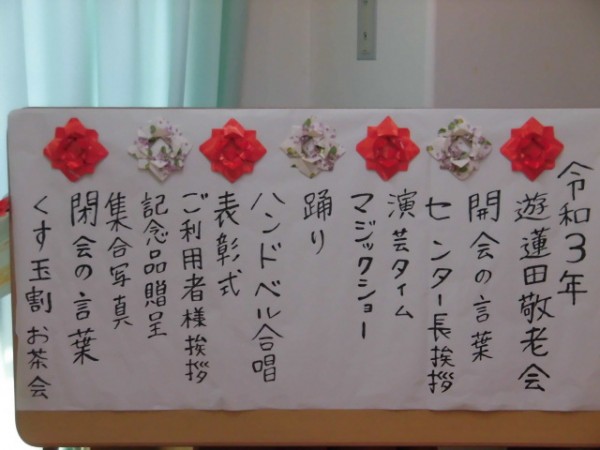 令和3年
遊蓮田敬老会
開会の言葉
センター長挨拶
演芸タイム
マジックショー
踊り
ハンドベル合唱
表彰式
ご利用者様挨拶
記念品贈呈
集合写真
閉会の言葉
くす玉割お茶会